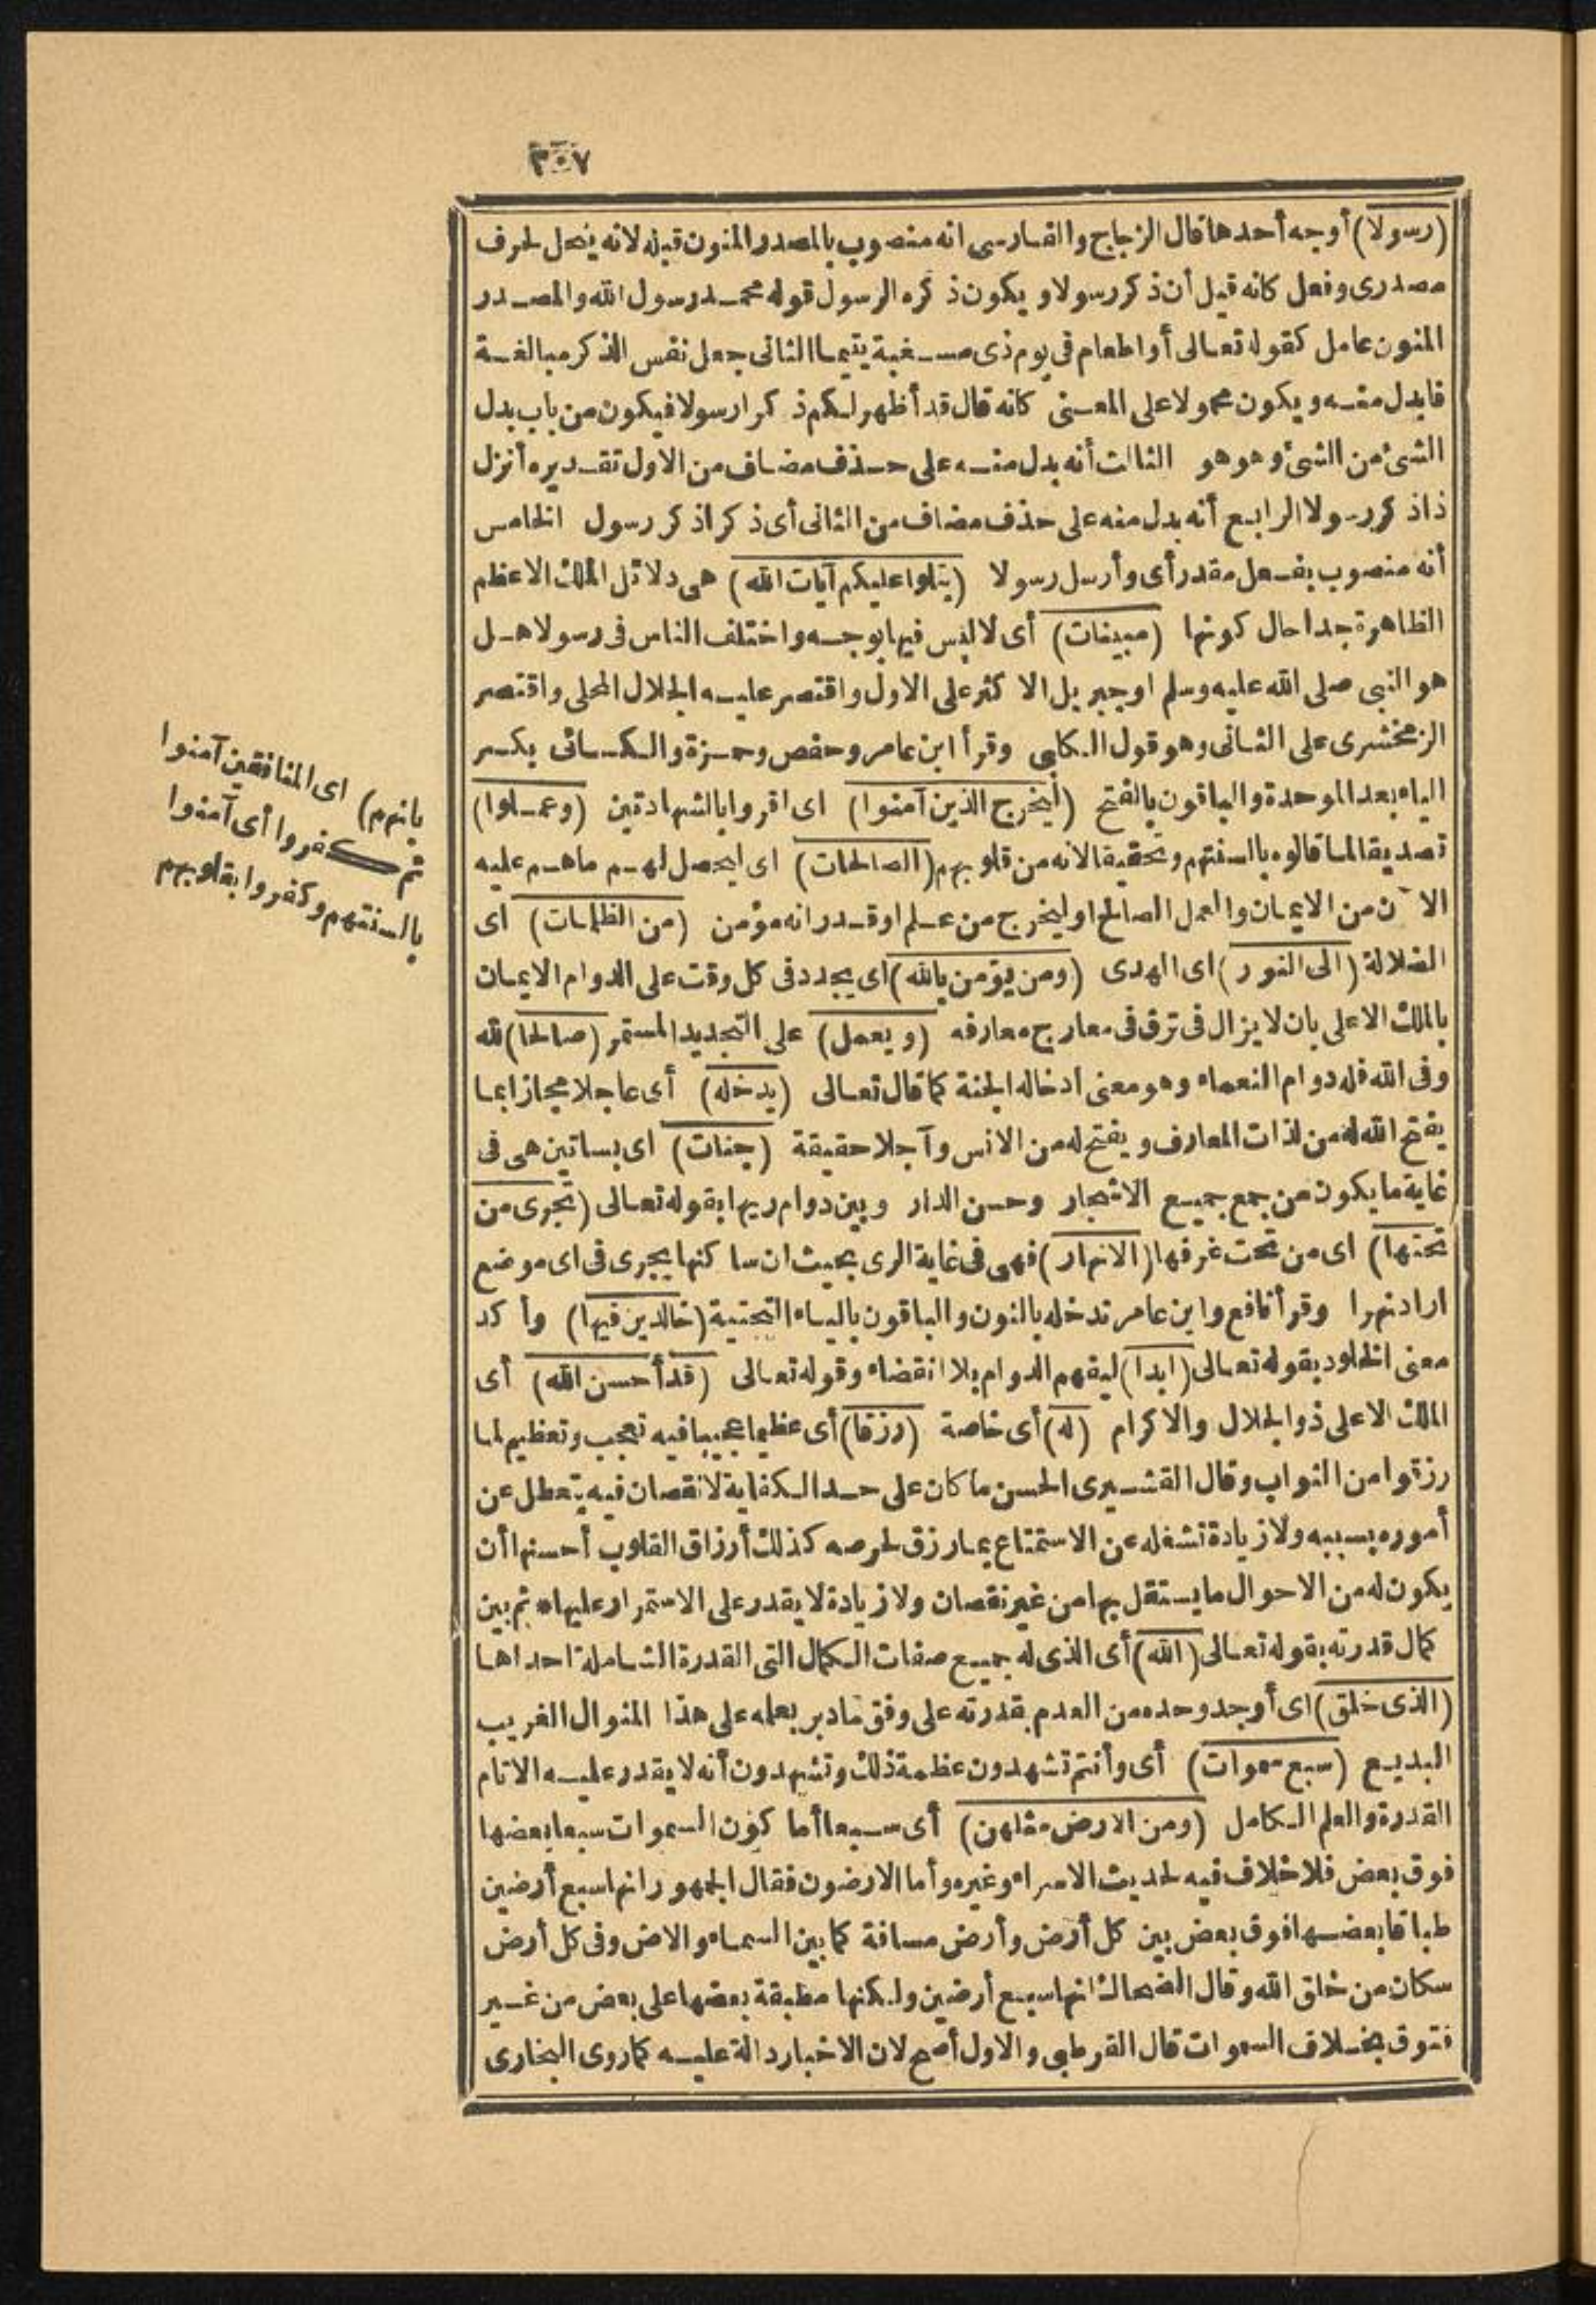 ٣٠٧
(رسولا) أوجه أحدها قال الزجاج والفارسى انه منصوب بالمصدر المنون قبله لانه ينحل لحرف
مصدرى وفعل كانه قيل أن ذكر رسولا ويكون ذكره الرسول قوله محمد رسول الله والمصدر
المنون عامل كقوله تعالى أو اطعام فى يوم ذى مسغبة يتيما الثانى جعل نفس الذكر مبالغة
فابدل منه ويكون محمولا على المعنى كانه قال قد أظهر لكم ذكرا رسولا فيكون من باب بدل
الشئ من الشئ وهو هو الثالث أنه بدل منه على حذف مضاف من الاول تقديره أنزل
ذا ذكر رسولا الرابع أنه بدل منه على حذف مضاف من الثانى أى ذكرا ذكر رسول الخامس
أنه منصوب بفعل مقدر أى وأرسل رسولا (يتلوا عليكم آيات الله) هى دلائل الملك الاعظم
الظاهرة جدا حال كونها (مبينات) أى لا لبس فيها بوجه واختلف الناس فى رسولا هل
هو النبى صلى الله عليه وسلم اوجبريل الاكثر على الاول واقتصر عليه الجلال المحلى واقتصر
الزمخشرى على الثانى وهو قول الكلبى وقرأ ابن عامر وحفص وحمزة والكسائى بكسر
الياء بعد الموحدة والباقون بالفتح (ليخرج الذين آمنوا) اى اقروا بالشهادتين (وعملوا)
تصديقا لما قالوه بالسنتهم وتحقيقا لانه من قلوبهم (الصالحات) اى ليحصل لهم ماهم عليه
الآن من الايمان والعمل الصالح او ليخرج من علم اوقدر انه مؤمن (من الظلمات) اى
الضلالة (الى النور) اى الهدى (ومن يؤمن بالله) اى يجدد فى كل وقت على الدوام الايمان
بالملك الاعلى بان لا يزال فى ترق فى معارج معارفه (ويعمل) على التجديد المستمر (صالحا) لله
وفى الله فله دوام النعماء وهو معنى ادخاله الجنة كما قال تعالى (يدخله) أى عاجلا مجازا بما
يفتح الله له من لذات المعارف ويفتح له من الانس وآجلا حقيقة (جنات) اى بساتين هى فى
غاية ما يكون من جمع جميع الاشجار وحسن الدار وبين دوام ريها بقوله تعالى (تجرى من
تحتها) اى من تحت غرفها (الانهار) فهى فى غاية الرى بحيث ان ساكنها يجرى فى اى موضع
اراد نهرا وقرأ نافع وابن عامر ندخله بالنون والباقون بالياء التحتية (خالدين فيها) وأكد
معنى الخلود بقوله تعالى (ابدا) ليفهم الدوام بلا انقضاء وقوله تعالى (قد أحسن الله) أى
الملك الاعلى ذو الجلال والاكرام (له) أى خاصة (رزقا) أى عظيما عجيبا فيه تعجب وتعظيم لما
رزقوا من الثواب وقال القشيرى الحسن ما كان على حد الكفاية لا نقصان فيه يتعطل عن
أموره بسببه ولا زيادة تشغله عن الاستمتاع بما رزق لحرصه كذلك أرزاق القلوب أحسنها أن
يكون له من الاحوال ما يستقل بها من غير نقصان ولا زيادة لا يقدر على الاستمرار عليها* ثم بين
كمال قدرته بقوله تعالى (الله) أى الذى له جميع صفات الكمال التى القدرة الشاملة احداها
(الذى خلق) اى أوجد وحده من العدم بقدرته على وفق مادبر بعلمه على هذا المنوال الغريب
البديع (سبع سموات) أى وأنتم تشهدون عظمة ذلك وتشهدون أنه لا يقدر عليه الا تام
القدرة والعلم الكامل (ومن الارض مثلهن) أى سبعا أما كون السموات سبعا بعضها
فوق بعض فلا خلاف فيه لحديث الاسراء وغيره وأما الارضون فقال الجمهور انها سبع أرضين
طباقا بعضها فوق بعض بين كل أرض وأرض مسافة كما بين السماء والاض وفى كل أرض
سكان من خلق الله وقال الضحاك انها سبع أرضين ولكنها مطبقة بعضها على بعض من غير
فتوق بخلاف السموات قال القرطبى والاول أصح لان الاخبار دالة عليه كما روى البخارى
بانهم) اى المنافقين آمنوا
ثم كفروا أى آمنوا
بالسنتهم وكفروا بقلوبهم